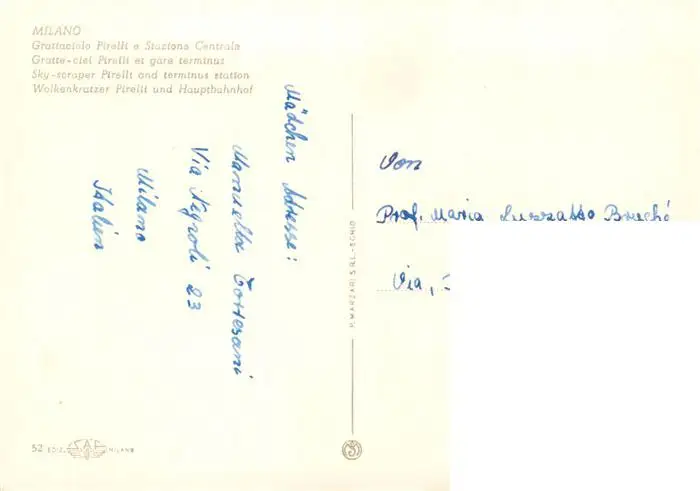 MILANO
Grattacielo Pirelli e Stazione Centrale
Gratte-ciel Pirelli et gare terminus
Sky-scraper Pirelli and terminus station
Wolkenkratzer Pirelli und Hauptbahnhof
Mädchen Adresse:
Manuella Tortesani
Via Negroli 23
Milano
Italien
P. MARZARI S.R.L.-SCHIO
Von
Prof. Maria Luzzatto
Via,
52 EDIZ. SAF MILANO